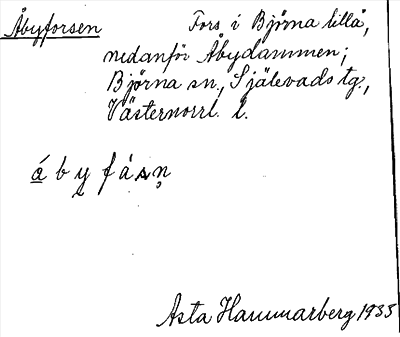 Åbyforsen Fors i Björna lillå,
nedanför Åbydammen;
Björna sn., Själevads tg.,
Västernorrl. l.
å b y f å s n̥
Asta Hammarberg 1935